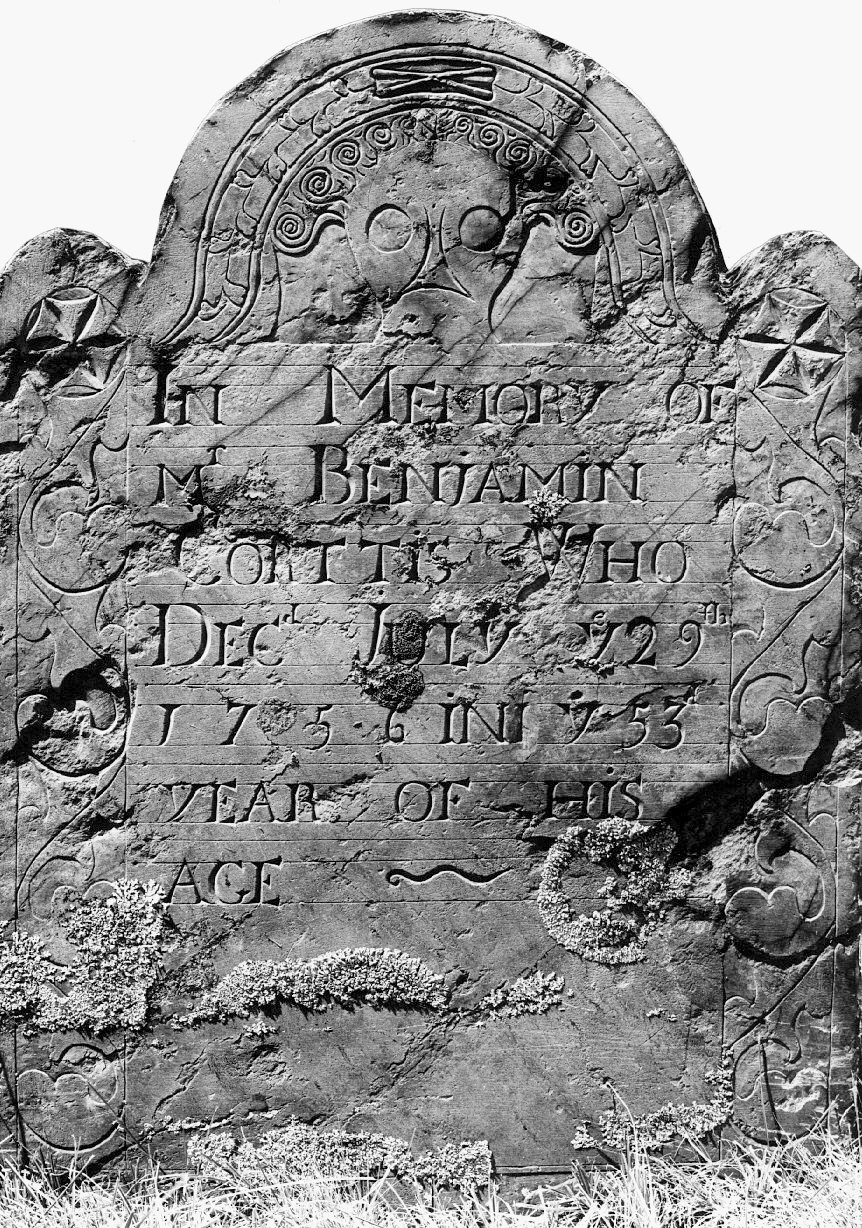 IN MEMORY OF
Mr BENJAMIN
COTTIS WHO
DECd JULY ye 29th
1756 IN ye 53d
YEAR OF HIS
AGE